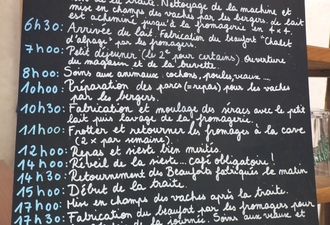 de la traite. Nettoyage de la machine et
mise en champs des vaches par les bergers. Le lait
est acheminé jusqu'à la fromagerie en 4x4.
6h30: Arrivée du lait. Fabrication du Beaufort "Chalet
d'alpage" par les fromagers.
7h00: Petit déjeuner (le 2e pour certains) Ouverture
du magasin et de la buvette.
8h00: Soins aux animaux: cochons, poules, veaux...
10h00: Préparation des parcs (=repas) pour les vaches
par les bergers.
10h30: Fabrication et moulage des séracs avec le petit
lait puis lavage de la fromagerie.
11h00: Frotter et retourner les fromages à la cave
(2x par semaine).
12h00: Repas et sieste bien mérités.
14h00: Réveil de la sieste... café obligatoire!
14h30: Retournement des Beauforts fabriqués le matin
15h00: Début de la traite.
17h00: Mise en champs des vaches après la traite.
17h30: Fabrication du beaufort par les fromagers pour
de la journée. Soins aux veaux et